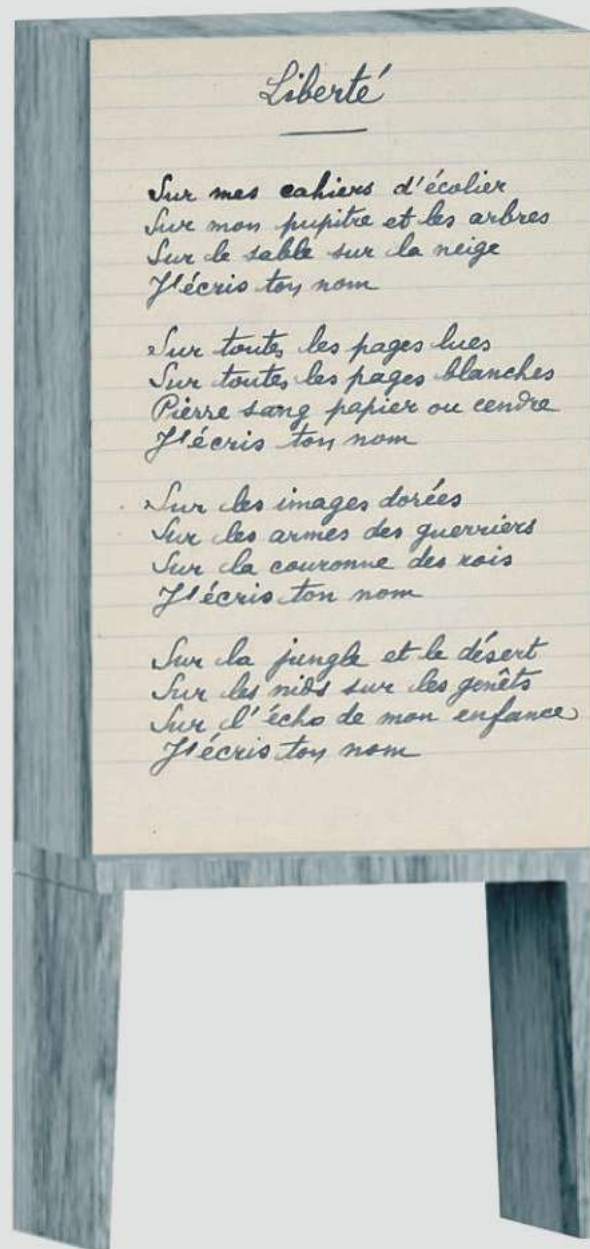 Liberté
Sur mes cahiers d'écolier
Sur mon pupitre et les arbres
Sur le sable sur la neige
J'écris ton nom
Sur toutes les pages lues
Sur toutes les pages blanches
Pierre sang papier ou cendre
J'écris ton nom
Sur les images dorées
Sur les armes des guerriers
Sur la couronne des rois
J'écris ton nom
Sur la jungle et le désert
Sur les nids sur les genêts
Sur l'écho de mon enfance
J'écris ton nom